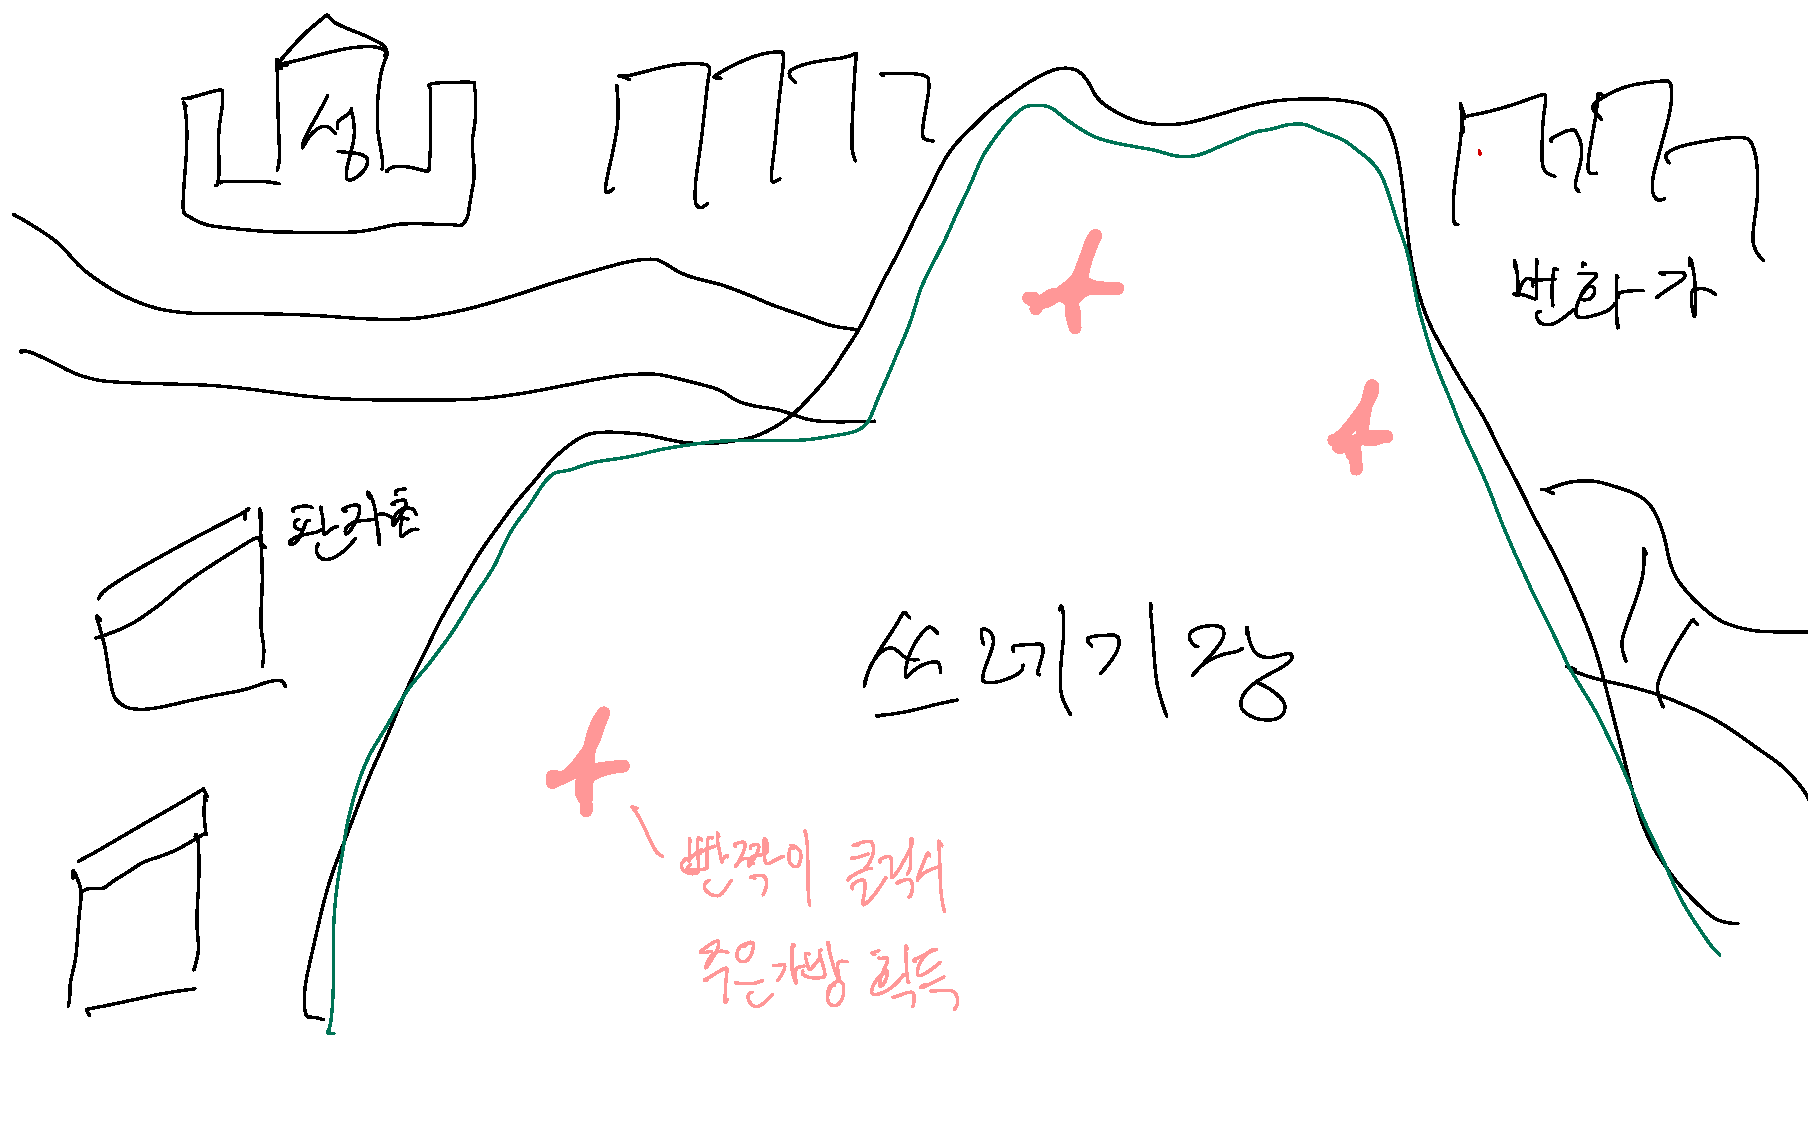 성
번화가
판자촌
쓰레기장
빤짝이 클릭시
주은가방 획득